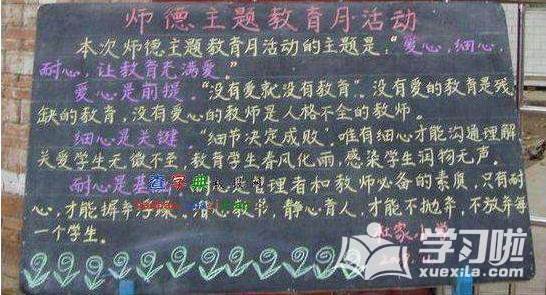 师德主题教育月活动
本次师德主题教育月活动的主题是:"爱心,细心,
耐心,让教育充满爱。"
爱心是前提。"没有爱就没有教育"。没有爱的教育是残
缺的教育,没有爱心的教师是人格不全的教师。
细心是关键。"细节决定成败",唯有细心才能沟通理解
关爱学生无微不至,教育学生春风化雨,感染学生润物无声。
耐心是基 管理者和教师必备的素质,只有耐
心,才能摒弃浮躁,潜心教书,静心育人,才能不抛弃,不放弃每
一个学生。
学习啦
xuexila.com